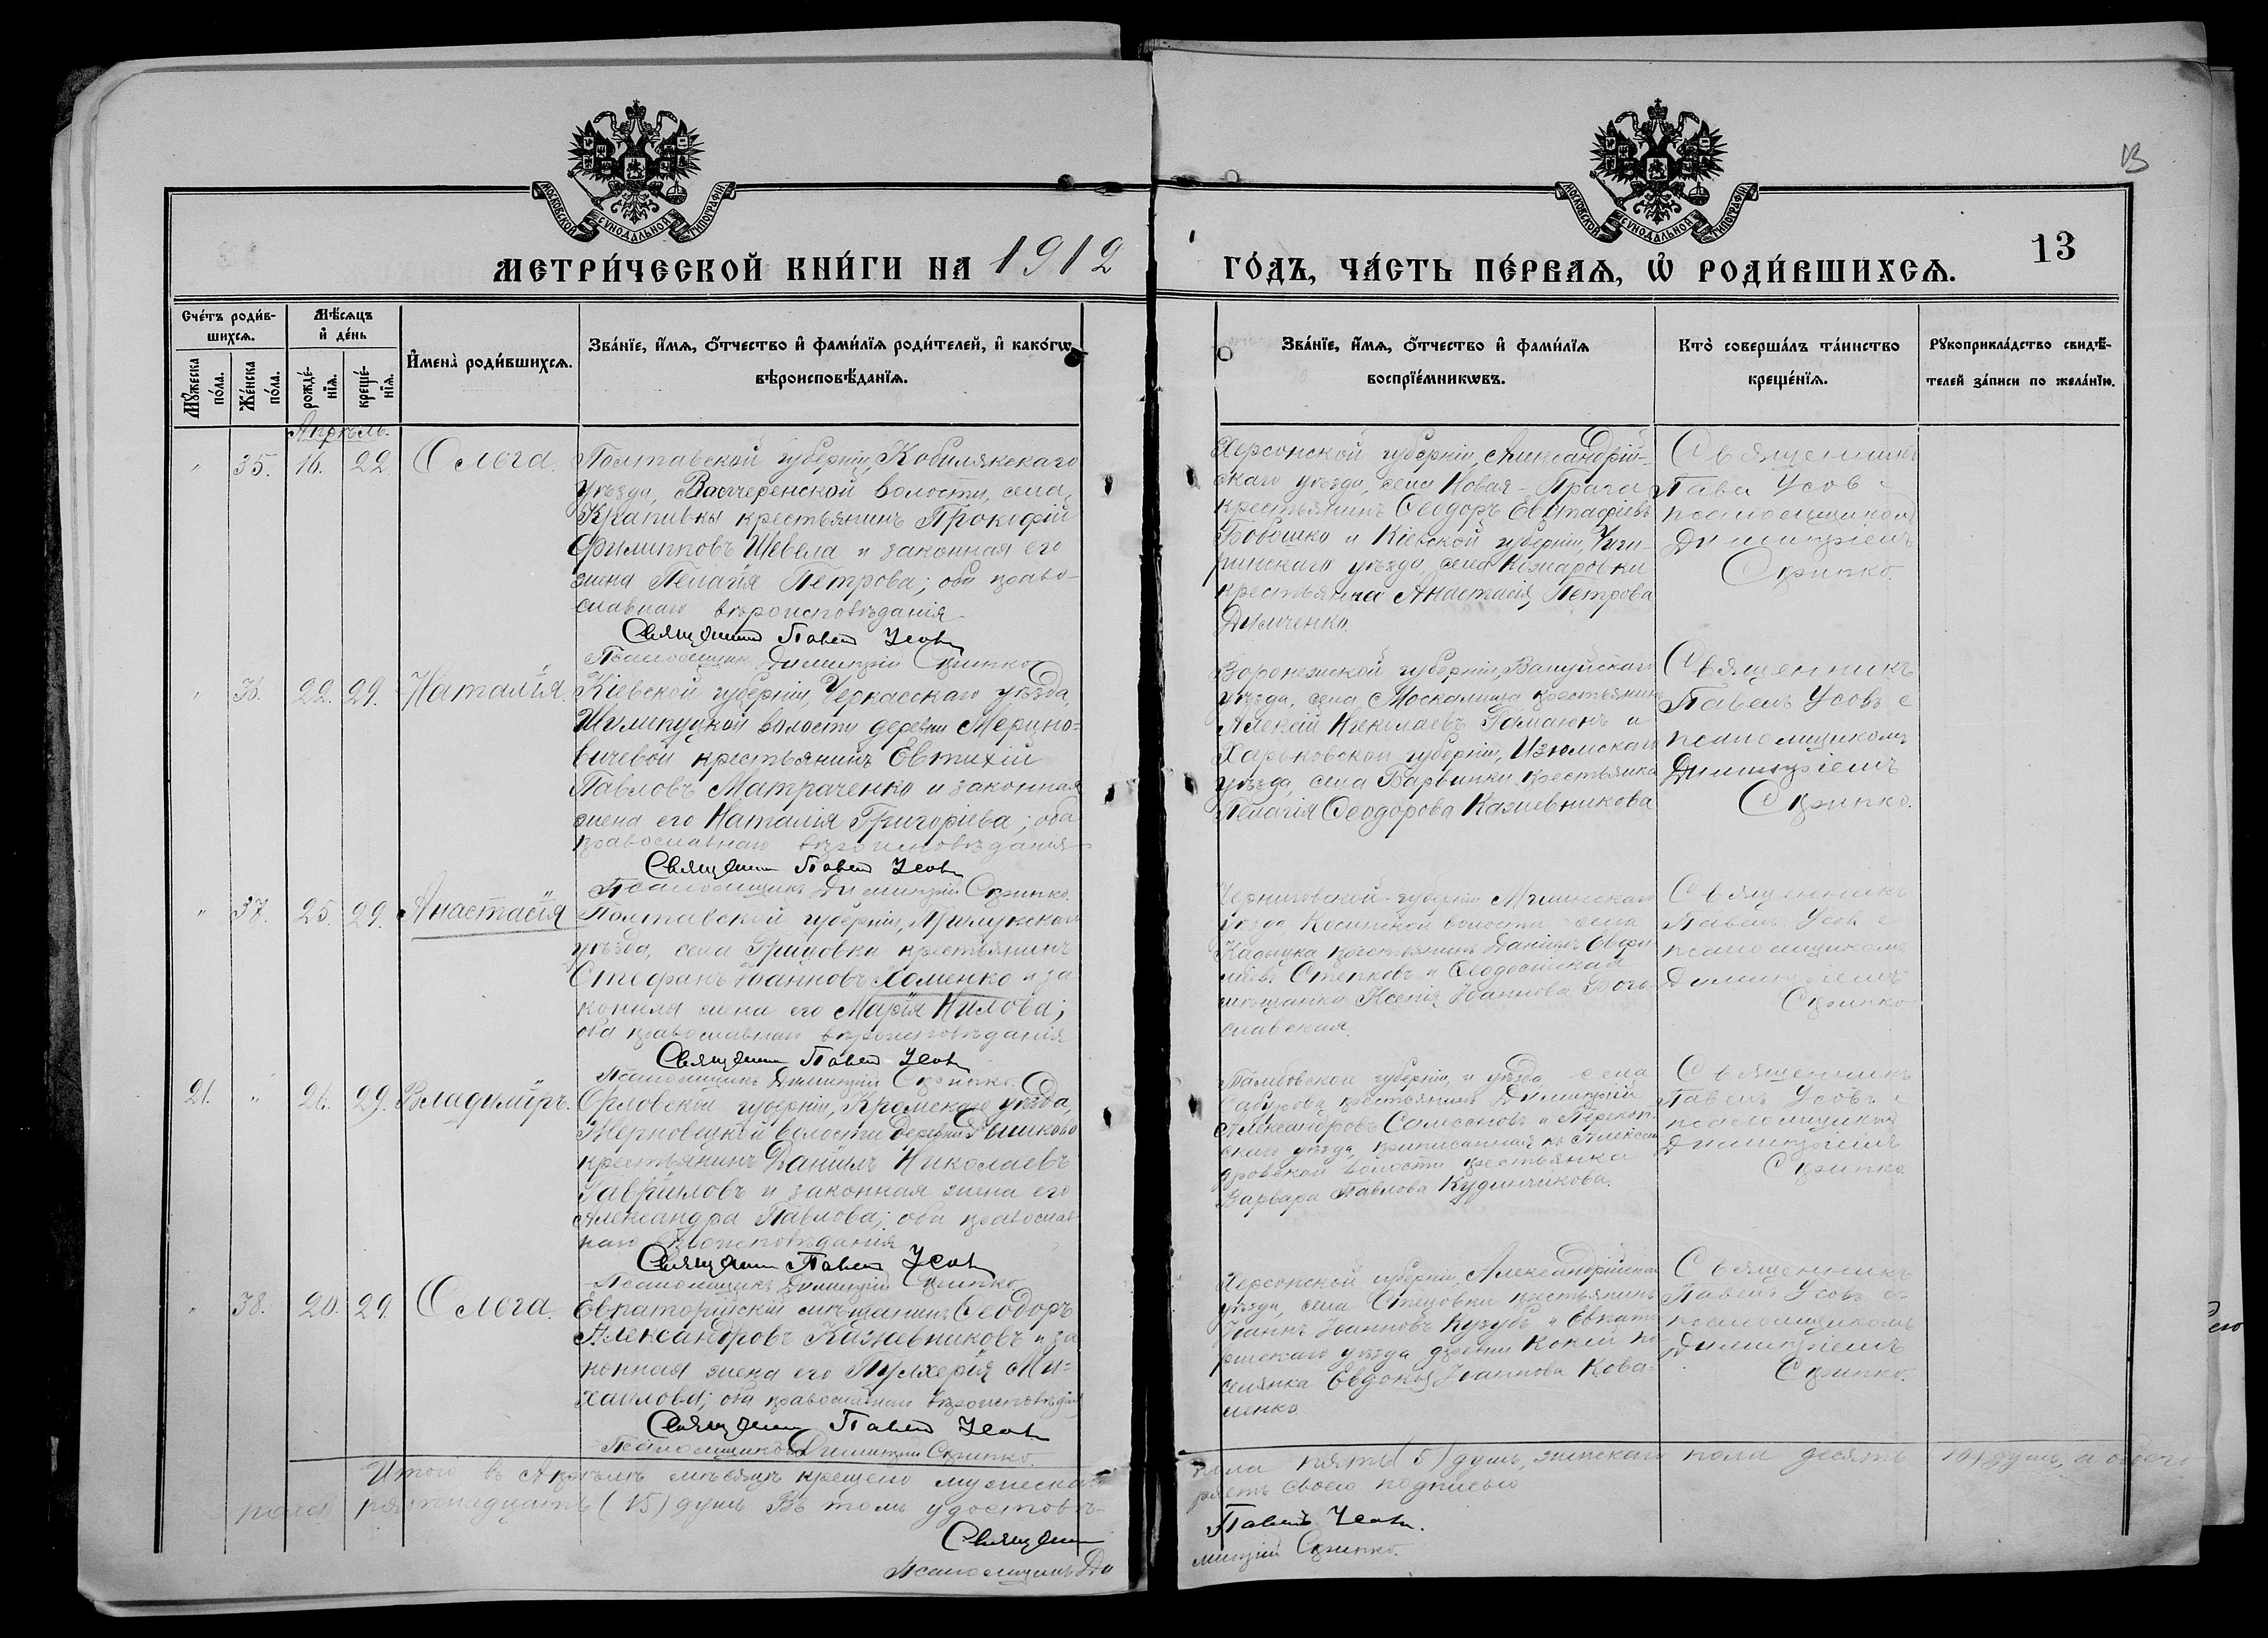 13
МОСКОВСКОЙ СѴНОДАЛЬНОЙ ТИПОГРАФІИ
МОСКОВСКОЙ СѴНОДАЛЬНОЙ ТИПОГРАФІИ
МЕТРИ́ЧЕСКОЙ КНИ́ГИ НА 1912
ГО́ДЪ, ЧА́СТЬ ПЕ́РВАѦ, Ѽ РОДИ́ВШИХСѦ.
13
Сче́тъ роди́в-
шихсѧ.
Мꙋ́жеска по́ла.
Же́нска по́ла.
Мѣ́сѧцъ
и҆ де́нь
рожде́-
нїѧ.
креще́-
нїѧ.
И҆мена̀ роди́вшихсѧ.
Зва́нїе, и҆́мѧ, ѻ҆́тчество и҆ фами́лїѧ роди́телей, и҆ како́гѡ
вѣроисповѣ́данїѧ.
Зва́нїе, и҆́мѧ, ѻ҆́тчество и҆ фами́лїѧ
воспрїе́мникѡвъ.
Кто̀ соверша́лъ та́инство
креще́нїѧ.
Рꙋкоприкла́дство свидѣ́-
телей за́писи по жела́нїю.
Апрѣль.
" 35. 16. 22. Ольга.
Полтавской губерніи, Кобилякскаго
уѣзда, волости, села
Крапивки крестьянинъ Прокофій
Филипповъ Шевела и законная его
жена Пелагія Петрова; оба право-
славнаго вѣроисповѣданія
Священник Павел Усовъ
Псаломщик Димитрій Скрипко
Херсонской губерніи, Александрій-
скаго уѣзда, села Новая-Прага
крестьянинъ Ѳеодоръ Евстафіевъ
Бобошко и Кіевской губерніи, Чиги-
ринскаго уѣзда, села Комаровки
крестьянка Анастасія Петрова
Димченко.
Священникъ
Павел Усов с
псаломщиком
Димитріемъ
Скрипко.
" 36. 22. 29. Наталія.
Кіевской губерніи, Черкасскаго уѣзда,
волости деревни Мерино-
вичевой крестьянинъ Евтихій
Павловъ Матраченко и законная
жена его Наталія Григоріева; оба
православнаго вѣроисповѣданія
Священник Павел Усовъ
Псаломщикъ Димитрій Скрипко.
Воронежской губерніи, Валуйскаго
уѣзда, села крестьянинъ
Алексій Николаевъ Гамаюнъ и
Харьковской губерніи, Изюмскаго
уѣзда, села Барвинки крестьянка
Пелагія Ѳеодорова Кажевникова
Священникъ
Павелъ Усовъ с
псаломщикомъ
Димитріемъ
Скрипко.
" 37. 25. 29. Анастасія
Полтавской губерніи, Прилукскаго
уѣзда, села Грицовки крестьянинъ
Стефанъ Іоанновъ Хоменко и за-
конная жена его Марія Нилова;
оба православнаго вѣроисповѣданія
Священник Павел Усовъ
Псаломщикъ Димитрій Скрипко.
Черниговской губерніи Мглинскаго
уѣзда, волости села
крестьянинъ Даніилъ
Степковъ и Ѳеодосійская
мѣщанка Ксенія Іоаннова Бого-
славская.
Священникъ
Павелъ Усов с
псаломщикомъ
Димитріемъ
Скрипко
21. " 26. 29. Владиміръ.
Орловской губерніи, Кромскаго уѣзда,
Жерновецкой волости деревни
крестьянинъ Даніилъ Николаевъ
Гавриловъ и законная жена его
Александра Павлова; оба православ-
наго вѣроисповѣданія
Священник Павел Усовъ
Псаломщикъ Димитрій Скрипко
Тамбовской губерніи, и уѣзда, села
Сабурова крестьянинъ Димитрій
Александровъ Самсоновъ и Перекоп-
скаго уѣзда, приписанная къ Алексан-
дровской волости крестьянка
Варвара Павлова Кудинчикова.
Священникъ
Павелъ Усовъ с
псаломщиком
Димитріемъ
Скрипко
" 38. 20. 29. Ольга.
Евпаторійскій мѣщанинъ Ѳеодоръ
Александровъ Кажевниковъ и за-
конная жена его Пулхерія Ми-
хаилова; оба православнаго вѣроисповѣданія
Священник Павел Усовъ
Псаломщикъ Димитрій Скрипко.
Херсонской губерніи, Александрійскаго
уѣзда, села Стецовки крестьянинъ
Іоаннъ Іоанновъ Кугубъ и Евпато-
рійскаго уѣзда деревни по-
селянка Евдокія Іоаннова Кова-
ленко
Священникъ
Павелъ Усовъ съ
псаломщикомъ
Димитріемъ
Скрипко.
Итого въ Апрѣлѣ мѣсяцѣ крещено мужескаго
пола пять (5) душъ, женскаго пола десять (10) душъ, а обоего
пола пятнадцать (15) душъ Въ томъ удостовѣ-
ряемъ своею подписью
Священник
Павелъ Усовъ.
Псаломщикъ Ди
митрій Скрипко.